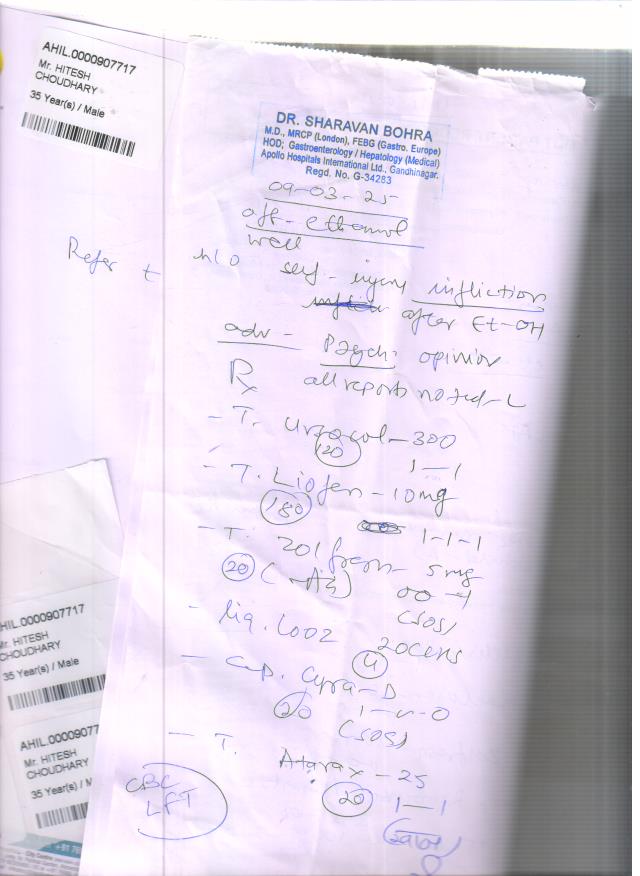 AHIL.0000907717
Mr. HITESH
CHOUDHARY
35 Year(s) / Male
DR. SHARAVAN BOHRA
M.D., MRCP (London), FEBG (Gastro. Europe)
HOD; Gastroenterology / Hepatology (Medical)
Apollo Hospitals International Ltd., Gandhinagar.
Regd. No. G-34283
09-03-25
off-ethanol
well
Refer t
h/O self-injury infliction
after Et-OH
adv- Psych. opinion
Rx all reports noted-L
- T. Ursocol-300
120 1-1
- T. Liofen-10mg
180 1-1-1
- T. Zolfresh-5mg
20 00-1
(SOS)
- liq. Looz 20ccHS
4
- Cap. Cyra-D
20
(SOS)
- T. Atarax-25
20 1-1
CBC
LFT
HIL.0000907717
Mr. HITESH
CHOUDHARY
35 Year(s) / Male
AHIL.00009077
Mr. HITESH
CHOUDHARY
35 Year(s) / M